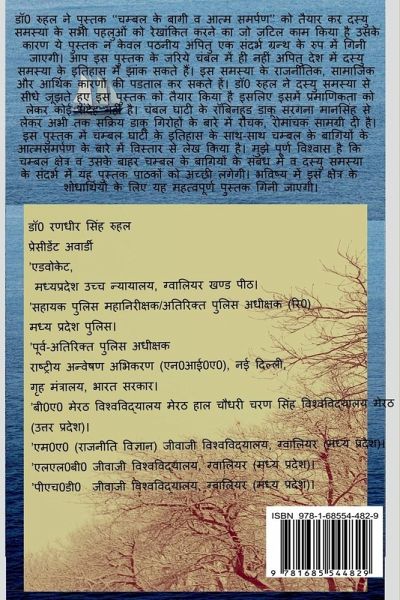 डॉ0 रुहल ने पुस्तक "चम्बल के बागी व आत्म समर्पण" को तैयार कर दस्यु
समस्या के सभी पहलुओं को रेखांकित करने का जो जटिल काम किया है उसके
कारण ये पुस्तक न केवल पठनीय अपितु एक संदर्भ ग्रन्थ के रुप में गिनी
जाएगी। आप इस पुस्तक के जरिये चंबल में ही नहीं अपितु देश में दस्यु
समस्या के इतिहास में झांक सकते हैं। इस समस्या के राजनीतिक, सामाजिक
और आर्थिक कारणों की पड़ताल कर सकते है। डॉ0 रुहल ने दस्यु समस्या से
सीधे जूझते हुए इस पुस्तक को तैयार किया है इसलिए इसमें प्रमाणिकता को
लेकर कोई संदेह नहीं है। चंबल घाटी के रॉबिनहुड डाकू सरगना मानसिंह से
लेकर अभी तक सक्रिय डाकू गिरोहों के बारे में रोचक, रोमांचक सामग्री दी है।
इस पुस्तक में चम्बल घाटी के इतिहास के साथ-साथ चम्बल के बागियों के
आत्मसमर्पण के बारे में विस्तार से लेख किया है। मुझे पूर्ण विश्वास है कि
चम्बल क्षेत्र व उसके बाहर चम्बल के बागियों के संबंध में व दस्यु समस्या
के संदर्भ में यह पुस्तक पाठकों को अच्छी लगेगी। भविष्य में इस क्षेत्र के
शोधार्थियों के लिए यह महत्वपूर्ण पुस्तक गिनी जाएगी।
डॉ0 रणधीर सिंह रुहल
प्रेसीडेंट अवार्डी
'एडवोकेट,
मध्यप्रदेश उच्च न्यायालय, ग्वालियर खण्ड पीठ।
'सहायक पुलिस महानिरीक्षक/अतिरिक्त पुलिस अधीक्षक (रि0)
मध्य प्रदेश पुलिस।
'पूर्व-अतिरिक्त पुलिस अधीक्षक
राष्ट्रीय अन्वेषण अभिकरण (एन0आई0ए0), नई दिल्ली,
गृह मंत्रालय, भारत सरकार।
'बी0ए0 मेरठ विश्वविद्यालय मेरठ हाल चौधरी चरण सिंह विश्वविद्यालय मेरठ
(उत्तर प्रदेश)।
'एम0ए0 (राजनीति विज्ञान) जीवाजी विश्वविद्यालय, ग्वालियर (मध्य प्रदेश)।
'एलएल0बी0 जीवाजी विश्वविद्यालय, ग्वालियर (मध्य प्रदेश)।
'पीएच0डी0 जीवाजी विश्वविद्यालय, ग्वालियर (मध्य प्रदेश)।
ISBN 978-1-68554-482-9
9 781685 544829